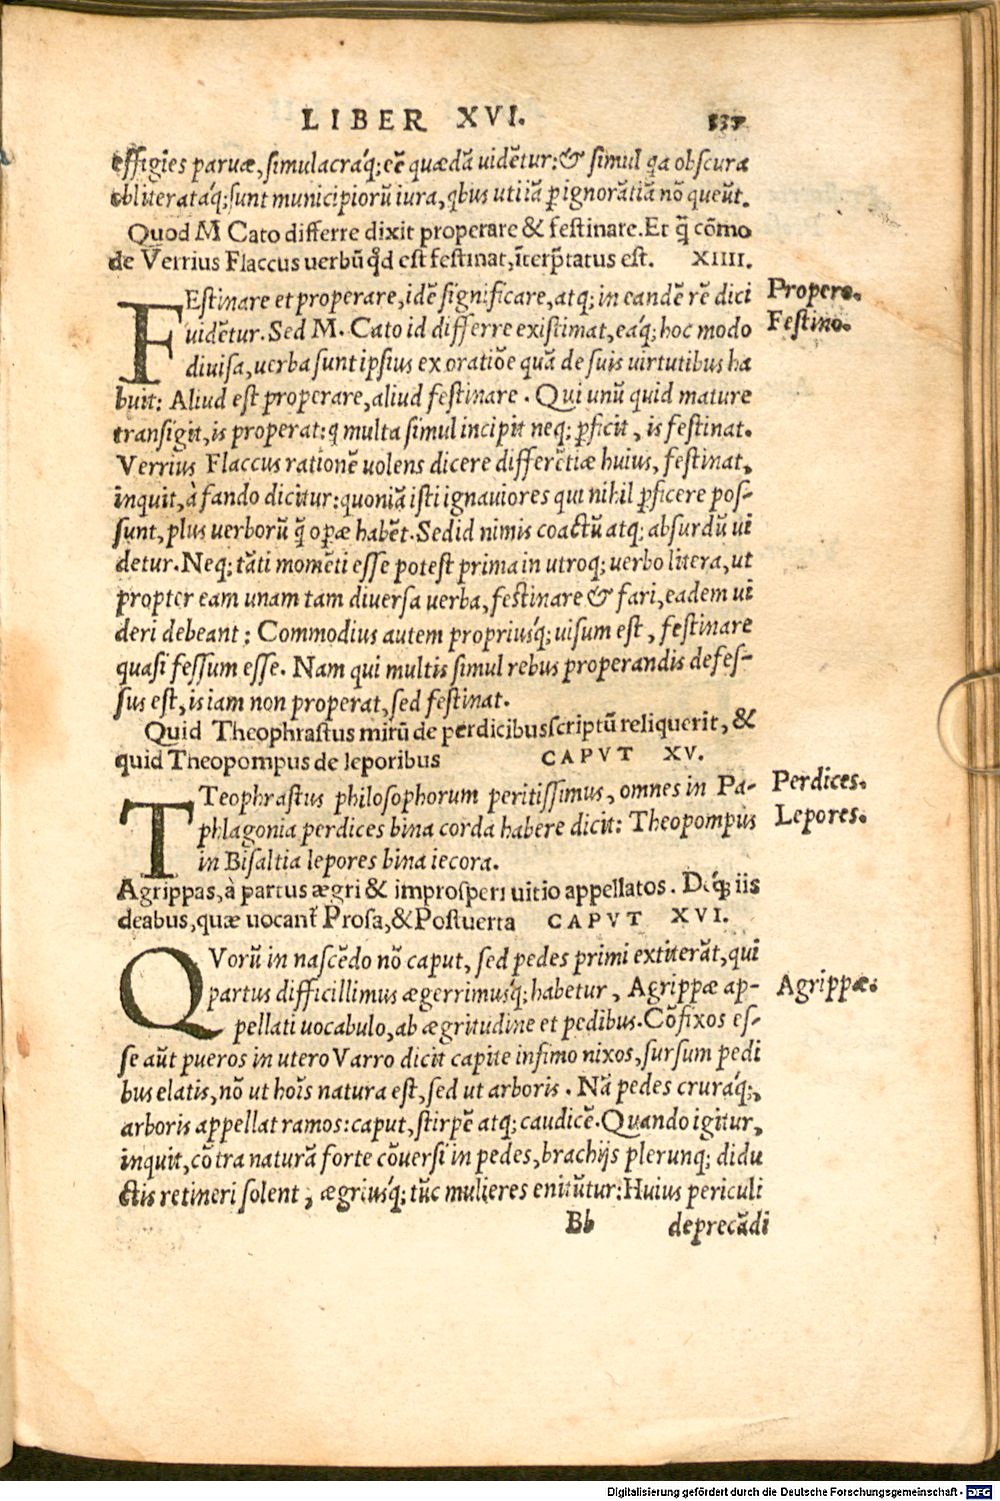 LIBER XVI. 337
effigies paruæ, simulacráq; eē quædā uidētur: & simul qa obscura
obliteratáq; sunt municipiorū iura, qbus uti iā p ignorātiā nō queūt.
Quod M Cato differre dixit properare & festinare. Et q̄ cōmo
de Verrius Flaccus uerbū qd est festinat, īterp̄tatus est. XIIII.
FEstinare et properare, idē significare, atq; in eandē rē dici
Propero.
uidētur. Sed M. Cato id differre existimat, eáq; hoc modo
Festino.
diuisa, uerba sunt ipsius ex oratiōe quā de suis uirtutibus ha
buit: Aliud est properare, aliud festinare. Qui unū quid mature
transigit, is properat: q multa simul incipit neq; pficit, is festinat.
Verrius Flaccus rationē uolens dicere differētiæ huius, festinat,
inquit, à fando dicitur: quoniā isti ignauiores qui nihil pficere pos-
sunt, plus uerborū q̄ opæ habēt. Sed id nimis coactū atq; absurdū ui
detur. Neq; tāti momēti esse potest prima in utroq; uerbo litera, ut
propter eam unam tam diuersa uerba, festinare & fari, eadem ui
deri debeant: Commodius autem propriusq́; uisum est, festinare
quasi fessum esse. Nam qui multis simul rebus properandis defes-
sus est, is iam non properat, sed festinat.
Quid Theophrastus mirū de perdicibus scriptū reliquerit, &
quid Theopompus de leporibus CAPVT XV.
TTeophrastus philosophorum peritissimus, omnes in Pa-
Perdices.
phlagonia perdices bina corda habere dicit: Theopompus
Lepores.
in Bisaltia lepores bina iecora.
Agrippas, à partus ægri & improsperi uitio appellatos. Deq́; iis
deabus, quæ uocant̄ Prosa, & Postuerta CAPVT XVI.
QVorū in nascēdo nō caput, sed pedes primi extiterāt, qui
partus difficillimus ægerrimusq́; habetur, Agrippæ ap-
Agrippæ.
pellati uocabulo, ab ægritudine et pedibus. Cōfixos es-
se aūt pueros in utero Varro dicit capite infimo nixos, sursum pedi
bus elatis, nō ut hoīs natura est, sed ut arboris. Nā pedes cruráq;,
arboris appellat ramos: caput, stirpē atq; caudicē. Quando igitur,
inquit, cōtra naturā forte cōuersi in pedes, brachijs plerunq; didu
ctis retineri solent, ægriusq́; tūc mulieres enitūtur: Huius periculi
Bb deprecādi
Digitalisierung gefördert durch die Deutsche Forschungsgemeinschaft - DFG